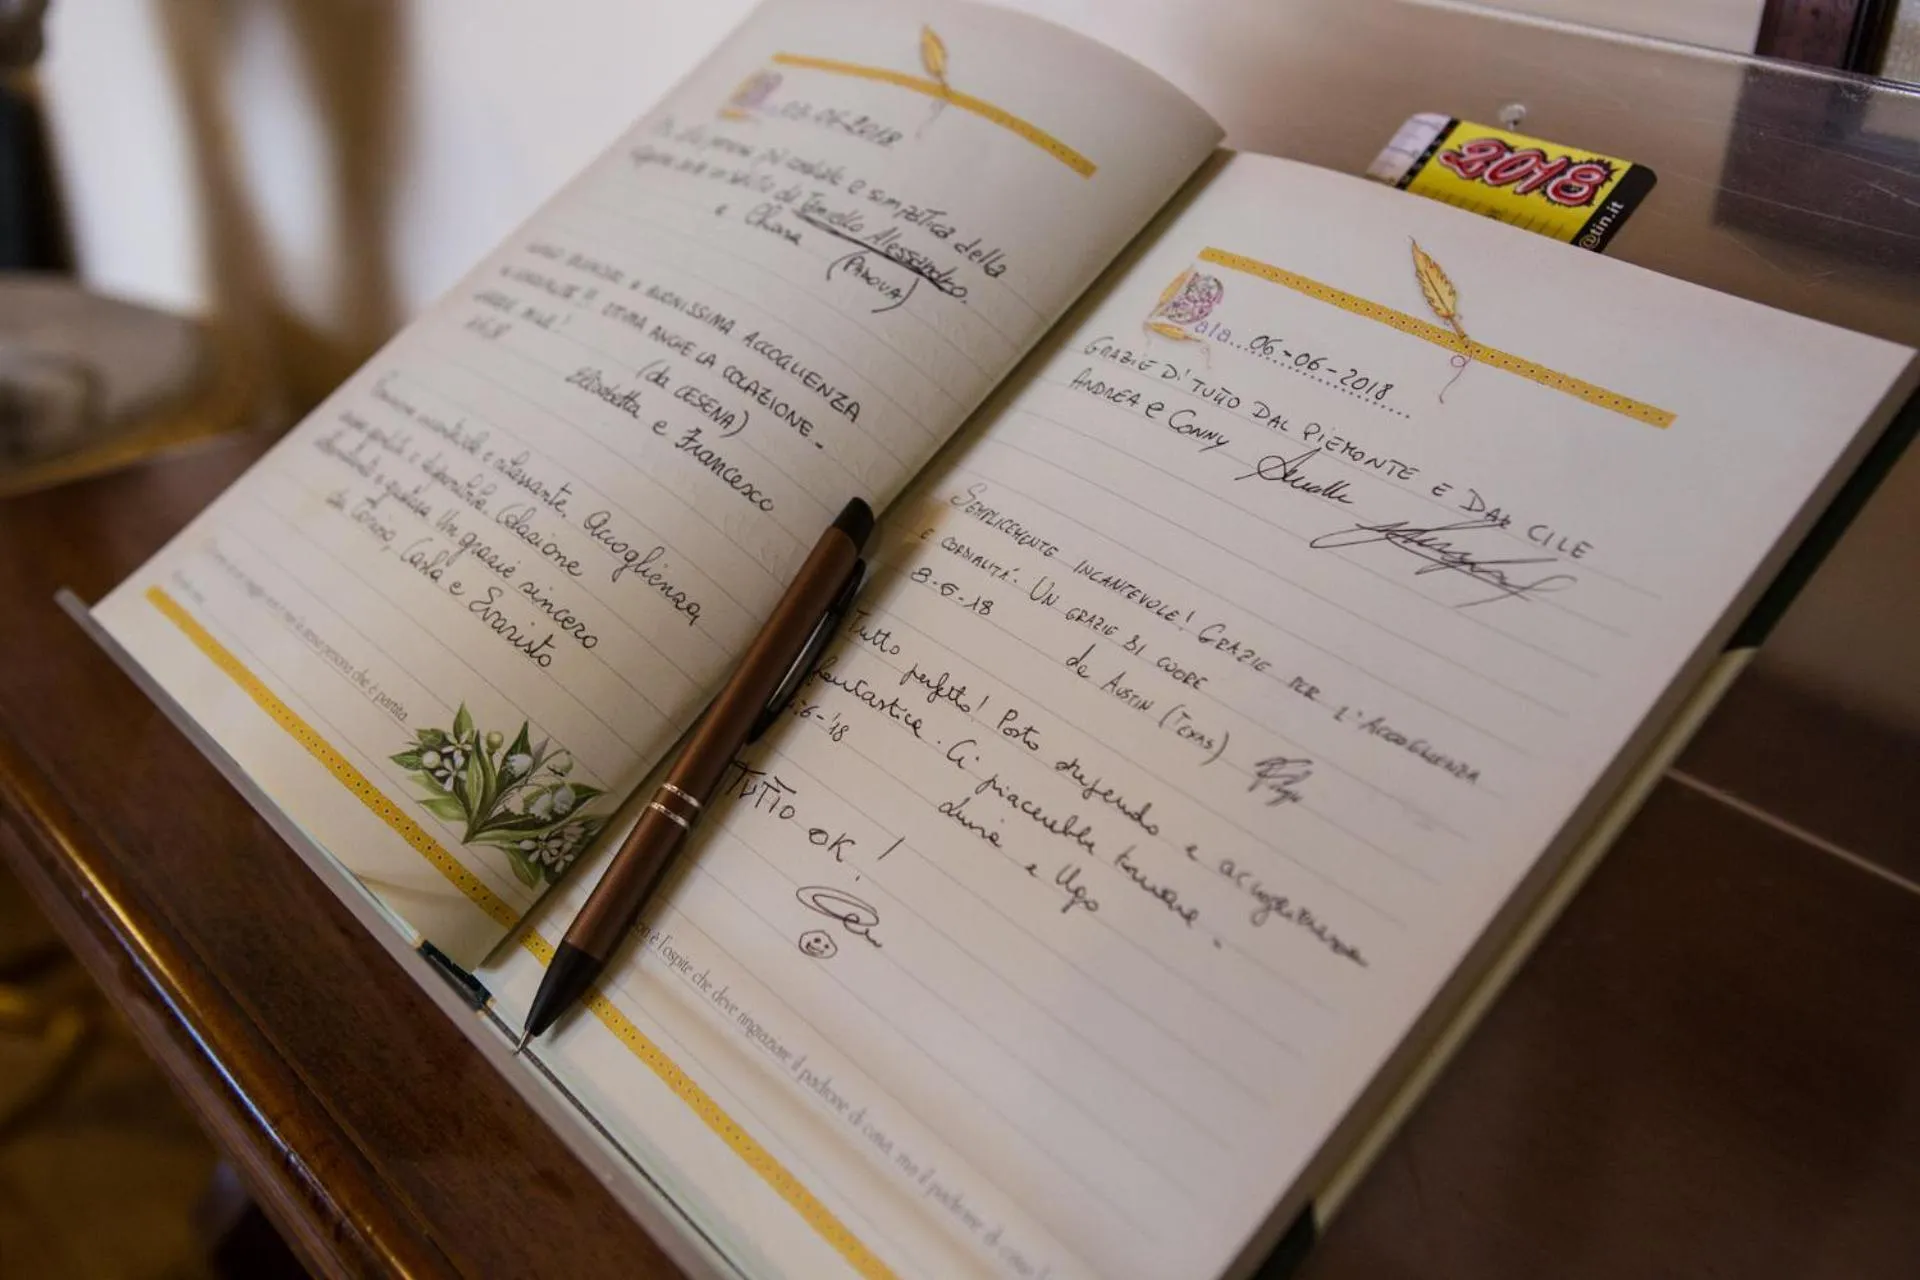 03-06-2018
più cordiale e simpatica della
di Tomiello Alessandro.
e Chiara
(PADOVA)
BUONISSIMA ACCOGLIENZA
OTTIMA ANCHE LA COLAZIONE
(da CESENA)
Elisabetta e Francesco
e rilassante. Accoglienza,
gentile e disponibile. Colazione
abbondante e gustosa. Un grazie sincero
da Torino, Carla e Evaristo
la stessa persona che è partita.
2018
@tin.it
Data 06-06-2018
GRAZIE DI TUTTO DAL PIEMONTE E DAL CILE
ANDREA e CONNY
SEMPLICEMENTE INCANTEVOLE! GRAZIE PER L'ACCOGLIENZA
E CORDIALITÀ. UN GRAZIE DI CUORE
8-6-18
da AUSTIN (TEXAS)
Tutto perfetto! Posto stupendo e accoglienza
fantastica. Ci piacerebbe tornare.
e Ugo
6-'18
TUTTO OK!
è l'ospite che deve ringraziare il padrone di casa, ma il padrone di casa